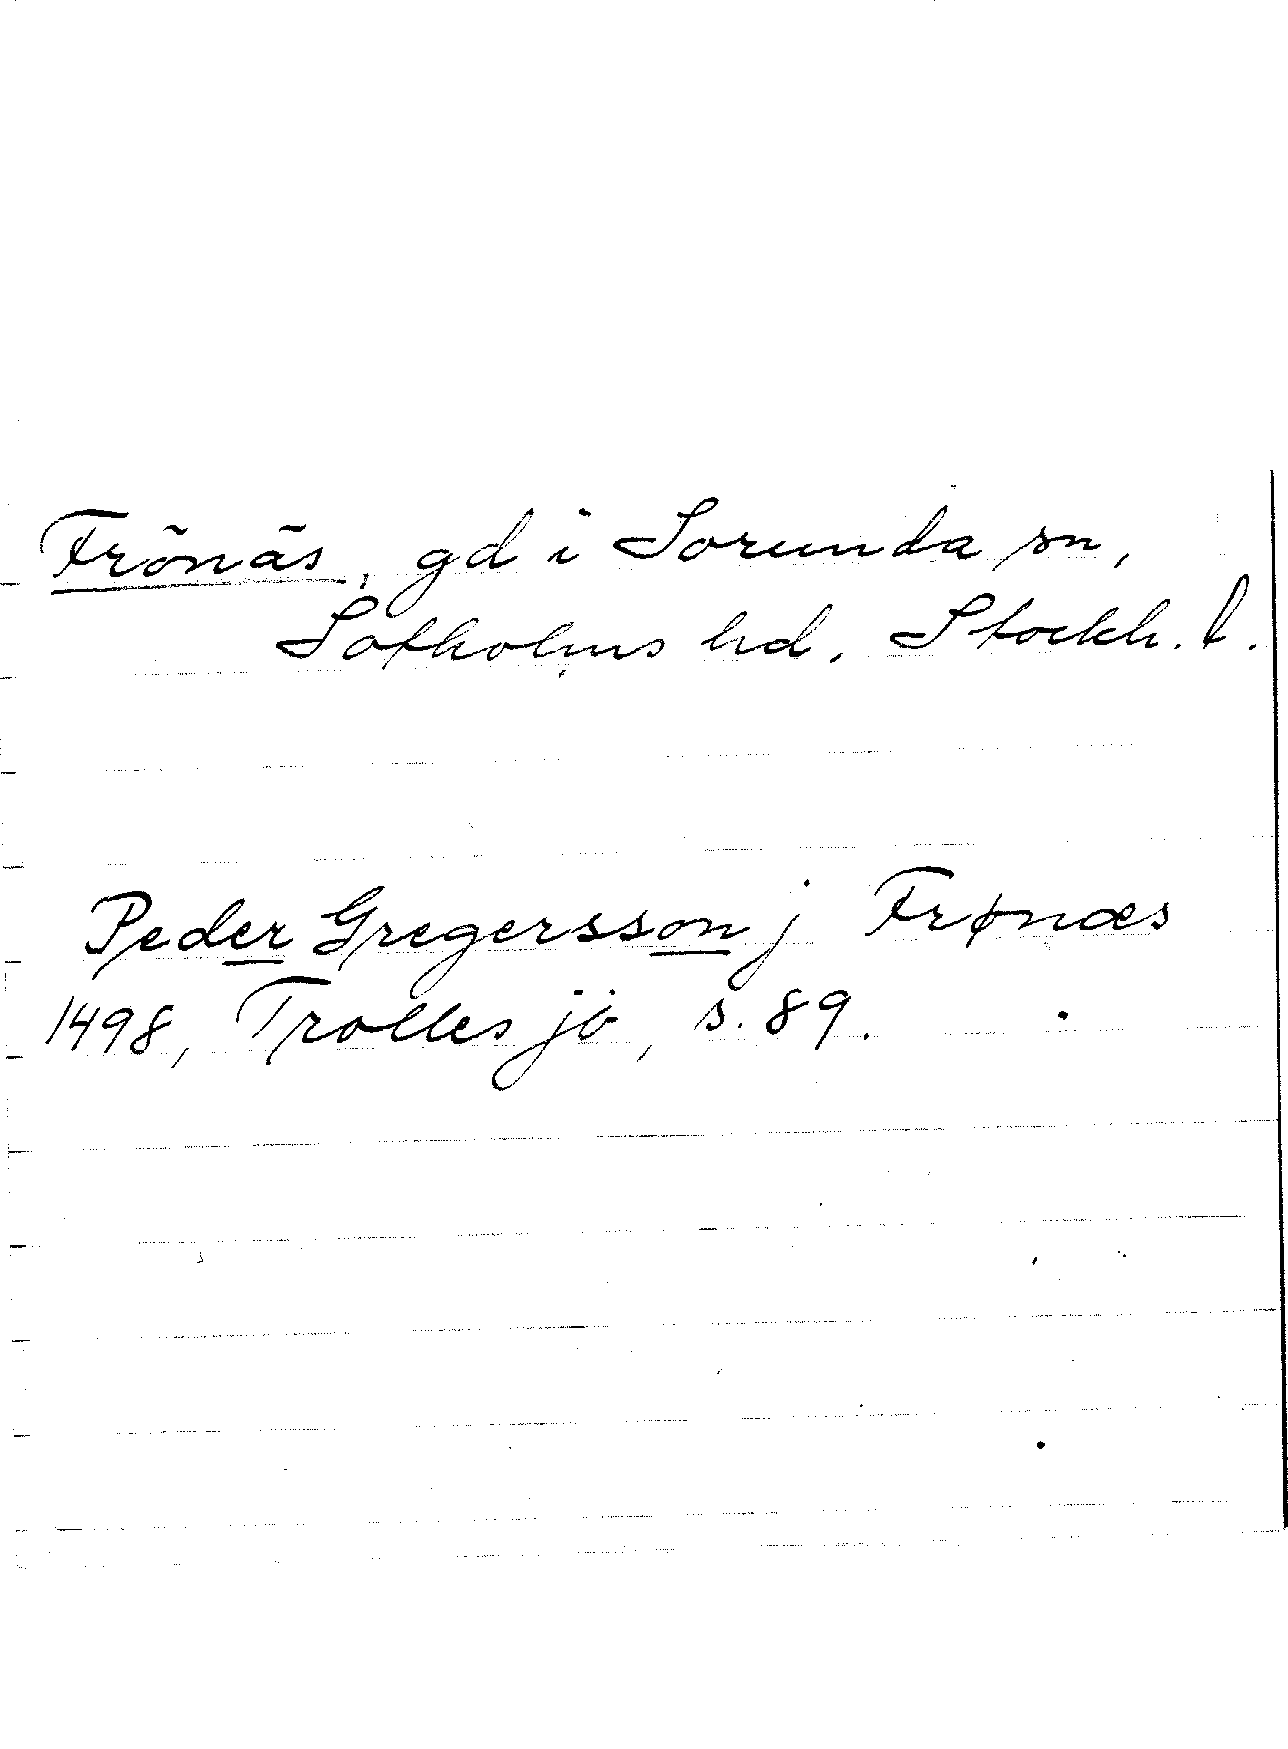 Frönäs, gd i Sorunda sn,
Sotholms hd. Stockh. l.
Peder Gregersson j Frønæs
1498, Trolles jb, s. 89.